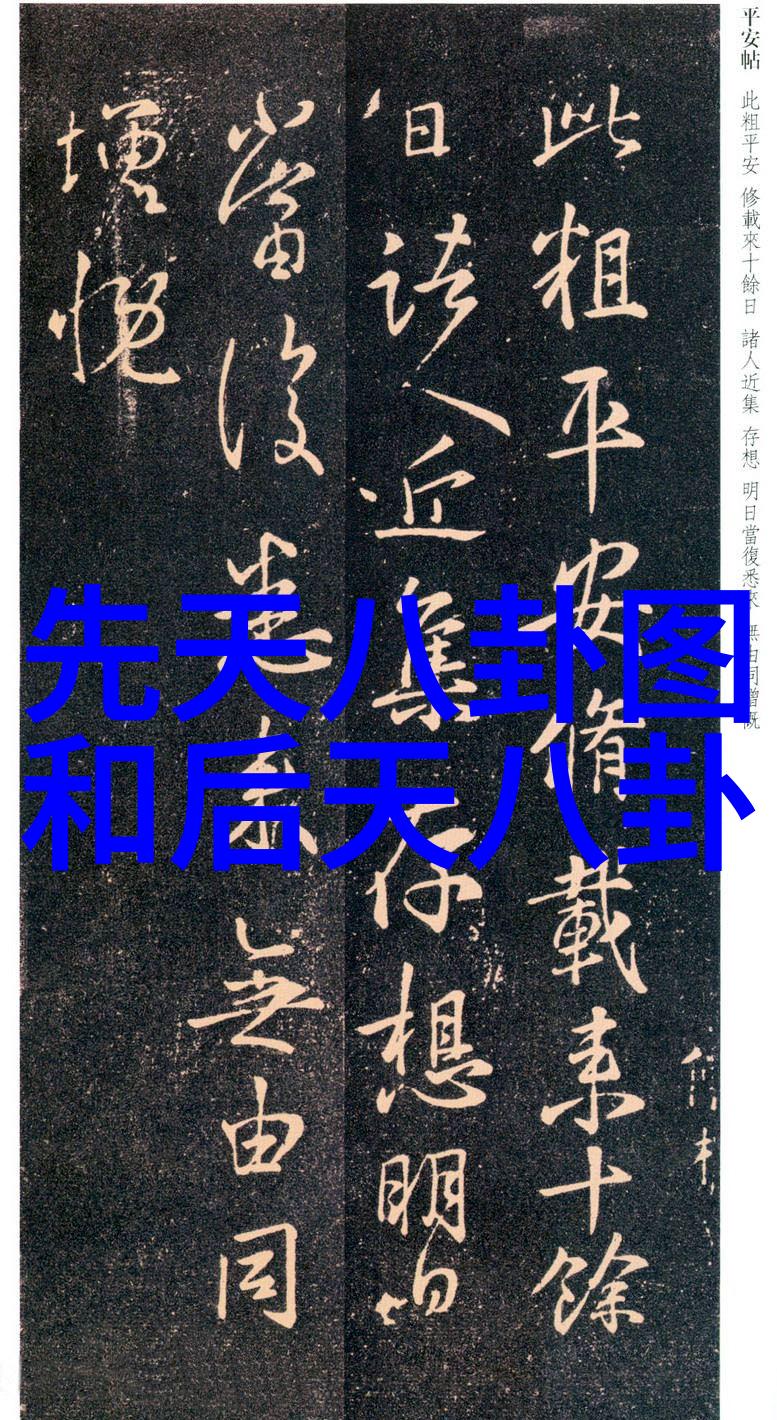 平安帖 此粗平安 修載來十餘日 諸人近集 存想 明日當復悉來 無由同增慨
此粗平安脩載来十餘
日諸人近集存想明日
當復悉来無由同
增慨
先天八卦图
和后天八卦